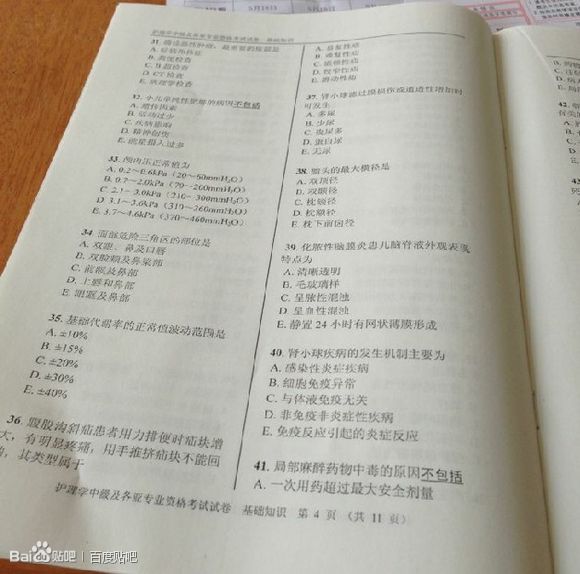 5月16日
护理学中级及各亚专业资格考试试卷 基础知识
B. 粪便检查
C. B超检查
D. CT检查
E. 病理学检查
32. 小儿单纯性肥胖的病因不包括
A. 遗传因素
B. 活动过少
C. 疾病影响
D. 精神创伤
E. 能量摄入过多
33. 颅内压正常值为
B. 0.7～2.0kPa（70～200mmH₂O）
C. 2.1～3.0kPa（210～300mmH₂O）
E. 3.7～4.6kPa（370～460mmH₂O）
34. 面部危险三角区的部位是
A. 双眼、鼻及口唇
B. 双脸颊及鼻梁部
C. 前额及鼻部
D. 上唇和鼻部
E. 眼眶及鼻部
35. 基础代谢率的正常值波动范围是
A. ±10%
B. ±15%
C. ±20%
D. ±30%
E. ±40%
36. 腹股沟斜疝患者用力排便时疝块增
大，有明显疼痛，用手推挤疝块不能回
纳，其类型属于
A. 易复性疝
B. 难复性疝
C. 嵌顿性疝
D. 绞窄性疝
E. 滑动性疝
37. 肾小球滤过膜损伤或通透性增加时
可发生
A. 多尿
B. 少尿
C. 夜尿多
D. 蛋白尿
E. 无尿
38. 胎头的最大横径是
A. 双顶径
B. 双颞径
C. 枕额径
D. 枕颏径
E. 枕下前囟径
39. 化脓性脑膜炎患儿脑脊液外观表现
特点为
A. 清晰透明
B. 毛玻璃样
C. 呈脓性混浊
D. 呈血性混浊
E. 静置24小时有网状薄膜形成
40. 肾小球疾病的发生机制主要为
A. 感染性炎症疾病
B. 细胞免疫异常
C. 与体液免疫无关
D. 非免疫非炎症性疾病
E. 免疫反应引起的炎症反应
41. 局部麻醉药物中毒的原因不包括
A. 一次用药超过最大安全剂量
护理学中级及各亚专业资格考试试卷 基础知识 第 4 页 （共 11 页）
Bai贴吧 | 百度贴吧